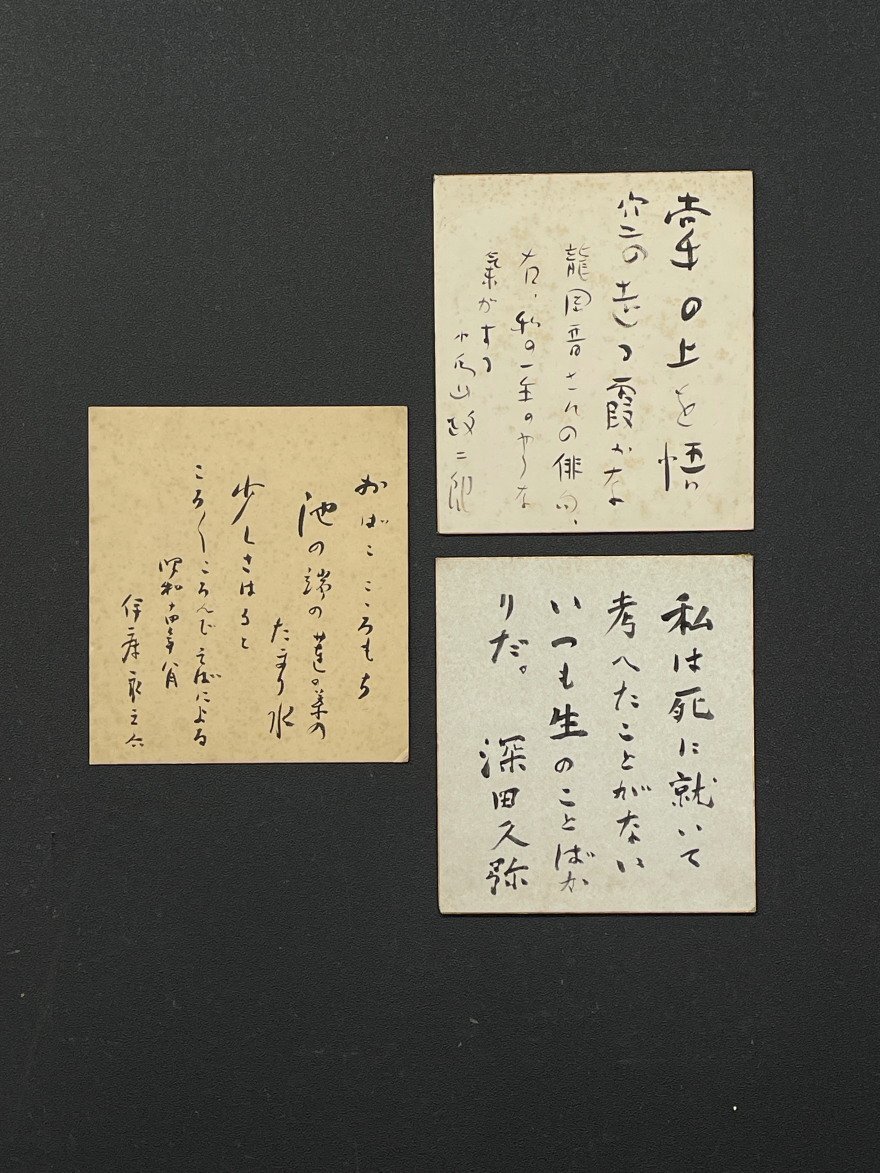 掌の上を悟
空の走る霞かな
龍岡晋さんの俳句、
右、私の一生のやうな
氣がする
小島政二郎
私は死に就いて
考へたことがない
いつも生のことばか
りだ。 深田久弥
おばこ こゝろもち
池の端の蓮の葉の
たまり水
少しさはると
ころ〱ころんでそばによる
昭和十四年八月
伊藤永之介